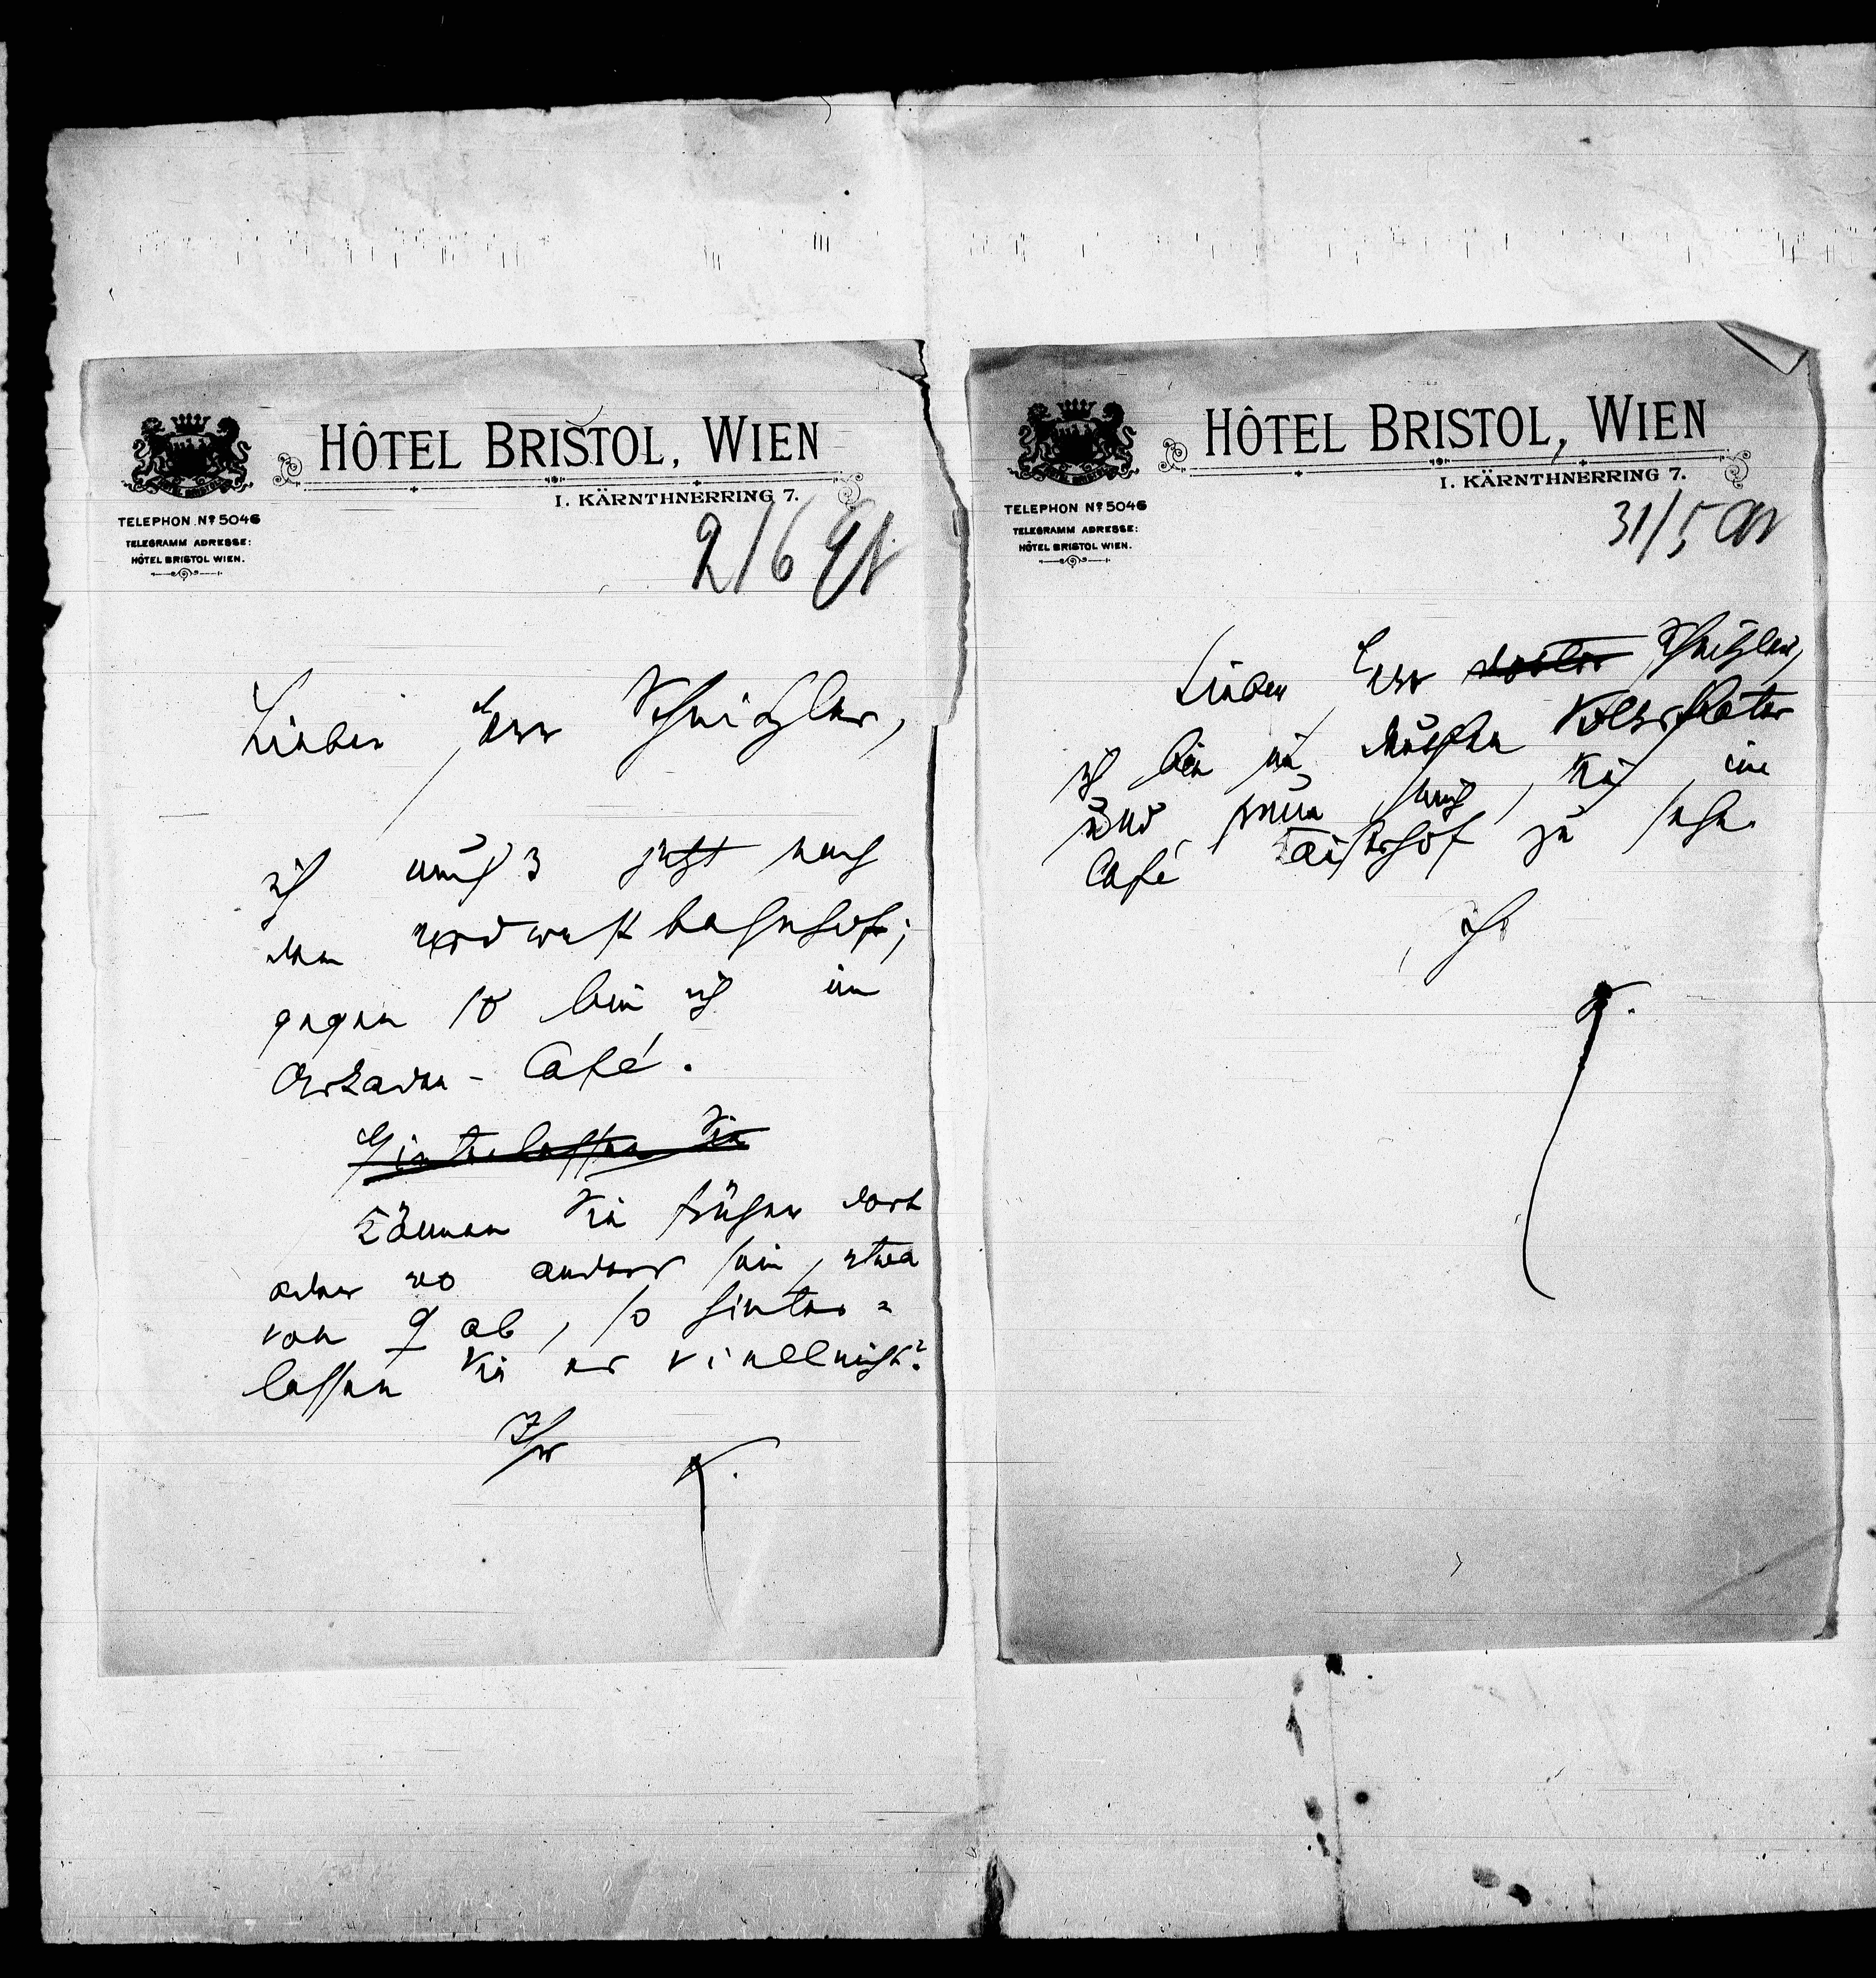 HÔTEL BRISTOL, WIEN
I. KÄRNTHNERRING 7.
TELEPHON Nº 5046
TELEGRAMM ADRESSE:
HÔTEL BRISTOL WIEN.
2/6 91
Lieber Herr Schnitzler,
ich muß jetzt nach
dem Nordwestbahnhof;
gegen 10 bin ich im
Arkaden-Café.
Hinterlassen Sie
Können Sie früher dort
oder wo anders sein, etwa
von 9 ab, so hinter=
lassen Sie es vielleicht?
Ihr
HÔTEL BRISTOL, WIEN
I. KÄRNTHNERRING 7.
TELEPHON Nº 5046
TELEGRAMM ADRESSE:
HÔTEL BRISTOL WIEN.
31/5 91
Lieber Herr Doktor Schnitzler,
ich bin im Deutschen Volkstheater
und freue mich, Sie im
Café Kaiserhof zu sehn.
Ihr